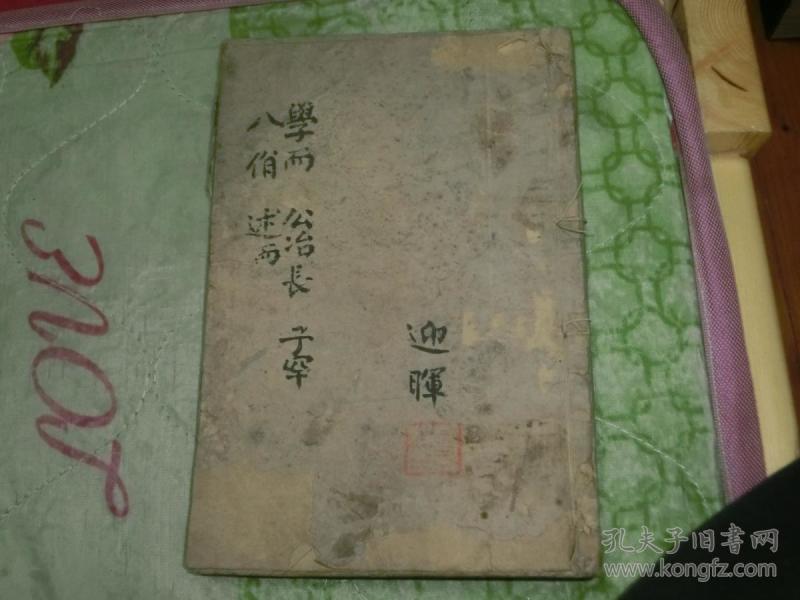 學而 公冶長 子罕
八佾 述而
迎暉
LOVE
孔夫子旧书网
www.kongfz.com